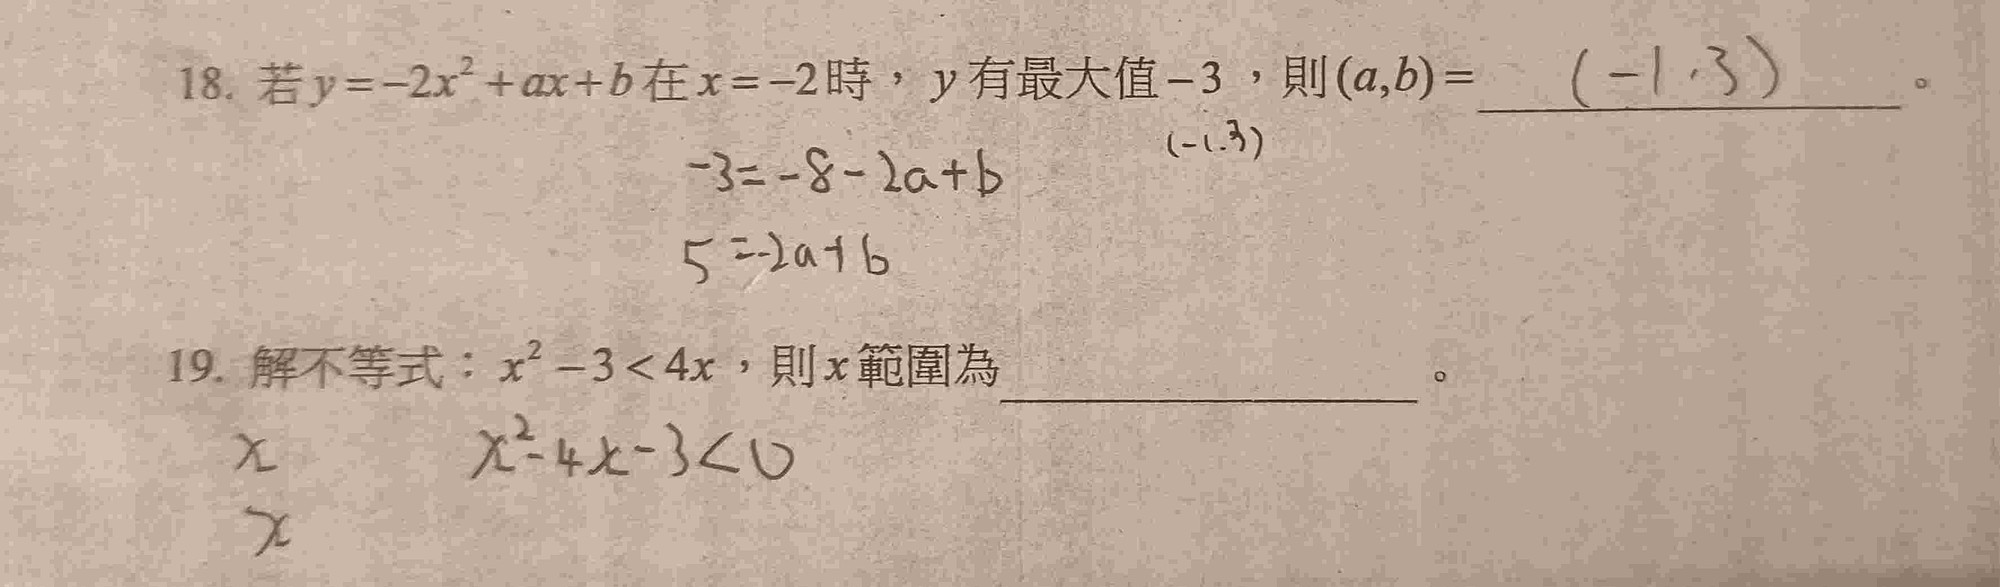 18. 若 y = -2x² + ax + b 在 x = -2 時，y 有最大值 -3，則 (a,b) = (-1,3)。
(-1.3)
-3 = -8 - 2a + b
5 = -2a + b
19. 解不等式：x² - 3 < 4x，則 x 範圍為＿＿＿＿＿＿。
x x² - 4x - 3 < 0
x